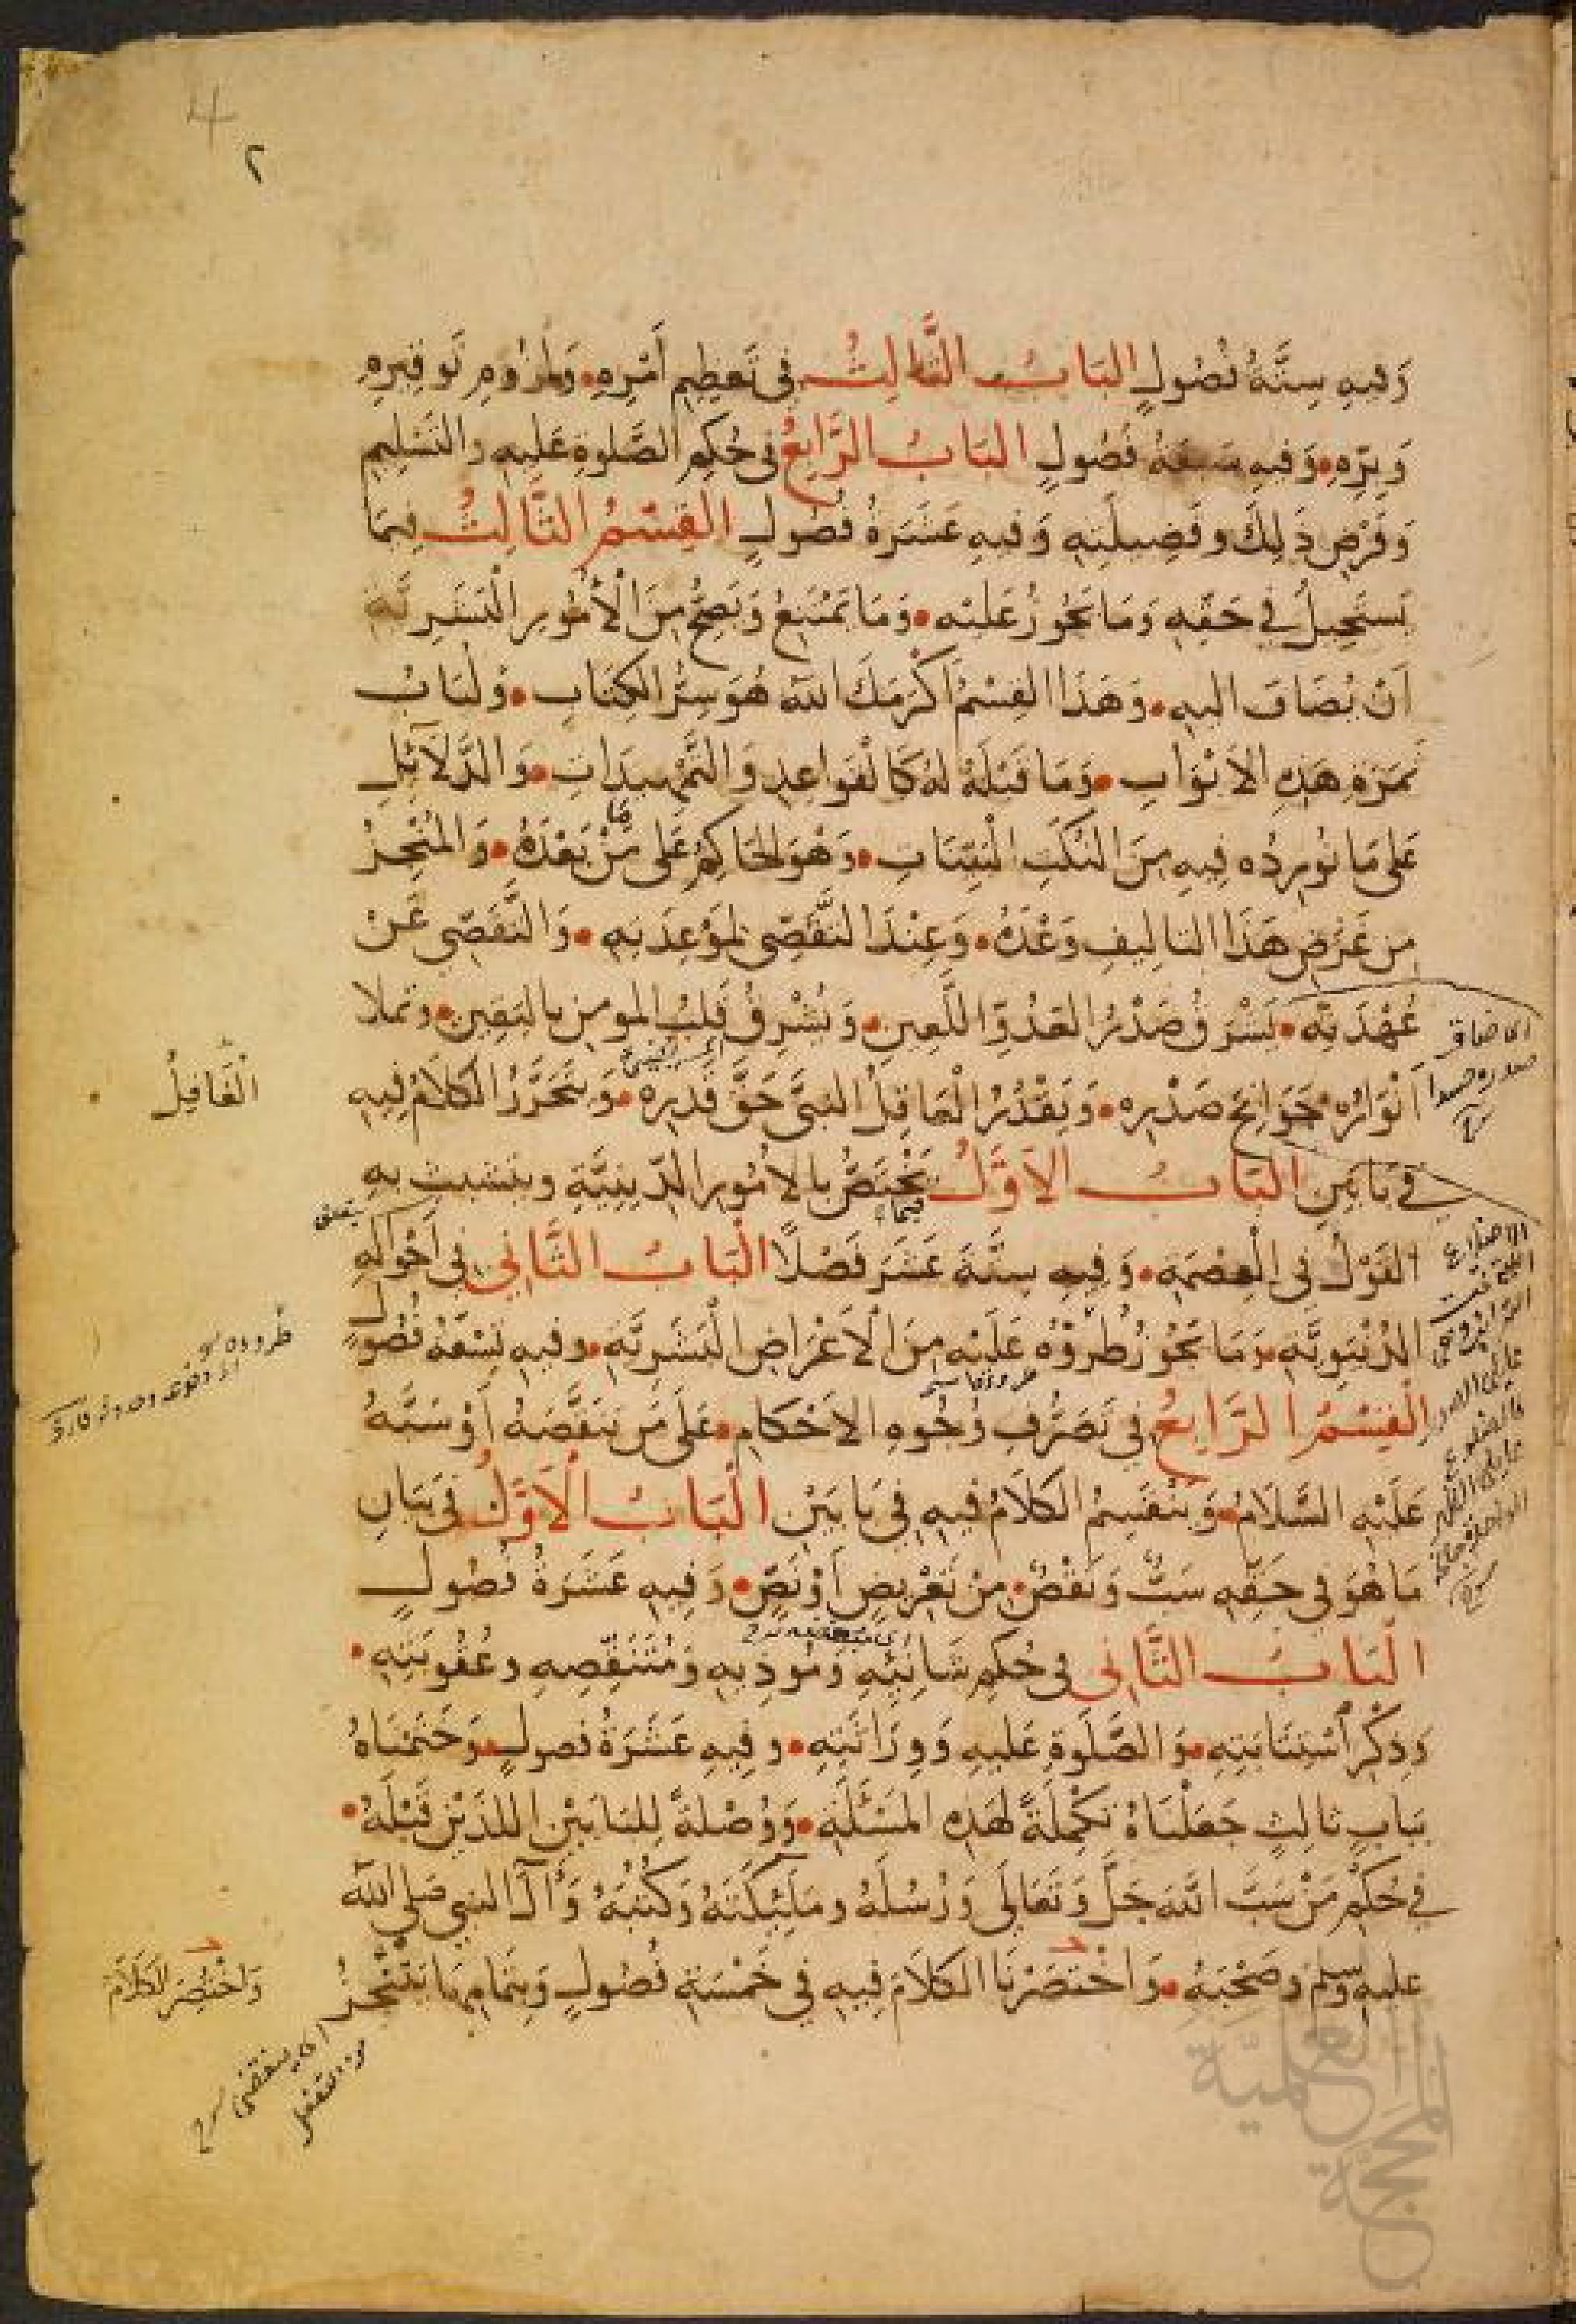 4
٢
وَفِيهِ سِتَّةُ فُصُولٍ البَابُ الثَّالِثُ فِي تَعْظِيمِ أَمْرِهِ وَلُزُومِ تَوقِيرِهِ
وَبِرِّهِ وَفِيهِ سَبعَةُ فُصُولٍ البَابُ الرَّابِعُ فِي حُكمِ الصَّلوةِ عَلَيهِ والتَسْلِيمِ
وَفَرْضِ ذَلِكَ وفَضِيلَتِهِ وَفِيهِ عَشَرَةُ فُصُولٍ القِسْمُ الثَّالِثُ فِيمَا
يَستَحِيلُ فِي حَقِّهِ وَمَا يَجُوزُ عَلَيْهِ وَمَا يَمْتَنِعُ وَيَصِحُّ مِنَ الْأُمُورِ الْبَشَرِيَّةِ
اَنْ يُضَافَ اليهِ وَهَذَا القِسْمُ أَكْرَمَكَ اللّهُ هُوَ سِرُّ الكِتَابِ وَلُبَابُ
ثَمَرَةِ هَذِهِ الاَبْوَابِ وَمَا قَبْلَهُ لَهُ كَالْقَوَاعِدِ وَالتَّمْهِيدَاتِ وَالدَّلَائِلِ
عَلَى مَا نُورِدُه فِيهِ مِنَ النُكَتِ الْبَيِّنَاتِ وَهُوَ الحَاكِمُ عَلَى مَنْ بَعْدَهُ وَالمُنْجِزُ
مَا
مِن غَرَضِ هَذَا التالِيفِ وَعْدَهُ وَعِنْدَ التَّقَصِّي لِمَوْعِدَتِهِ وَالتَّفَصِّي عَنْ
عُهْدَتِهِ يَشْرَقُ صَدْرُ العَدُوِّ اللَّعِينِ وَيُشْرِقُ قَلبُ المومِنِ بِاليَقِينِ وتملا
أَنْوَارُهُ جَوَانِحَ صَدْرِهِ وَيَقْدُرُ الْعَاقِلُ النبيَّ حَقَّ قَدرِهِ وَيَتَحَرَّرُ الكَلامُ فِيهِ
الْغَافِلُ
فِي بَابَيْنِ البَابُ الاَوَّلُ يَخْتَصُّ بِالاُمُورِ الدِّينِيَّةِ ويتشبث بِهِ
فيما
القَوْلُ فِي الْعِصْمَةِ وَفِيهِ سِتَّةَ عَشَرَ فَصْلًا الْبَابُ الثَّانِي فِي أَحْوَالِهِ
الدُنْيَوِيَّةِ وَمَا يَجُوزُ طُرُوُّهُ عَلَيْهِ مِنَ الْأَعْرَاضِ الْبَشَرِيَّةِ وفيهِ تِسْعَةُ فُصُولٍ
الْقِسْمُ الرَّابِعُ فِي تَصَرُّفِ وُجُوهِ الاَحْكَامِ عَلَى مَن تَنَقَّصَهُ أَوْ سَبَّهُ
عَلَيْهِ السَّلَامُ وَيَنْقَسِمُ الكَلَامُ فِيهِ فِي بَابَيْنِ الْبَابُ الْأَوَّلُ فِي بَيَانِ
مَا هُوَ فِي حَقِّهِ سَبٌّ وَنَقْصٌ مِنْ تَعْرِيضٍ أَوْ نَصٍّ وَفِيهِ عَشَرَةُ فُصُولٍ
الْبَابُ الثَّانِي فِي حُكمِ شَانِئِهِ وَمُوذِيهِ وَمُتَنَقِّصِهِ وعُقُوبَتِهِ
وَذِكْرِ أسْتِتَابَتِهِ وَالصَّلَوةِ عَلَيهِ وَوِرَاثَتِهِ وفِيهِ عَشَرَةُ فصولٍ وَخَتَمْنَاهُ
بِبَابٍ ثالِثٍ جَعَلْنَاهُ تَكْمِلَةً لِهَذِهِ المَسْئَلَةِ وَوُصْلَةً لِلبَابَيْنِ اللذَيْنِ قَبْلَهُ
فِي حُكْمِ مَنْ سَبَّ اللَّهَ جَلَّ وَتَعَالَى وَرُسُلَهُ ومَلَئِكَتَهُ وَكُتُبَهُ وَآلَ النبي صلى اللّه
عليهِ وسلم وصَحْبَهُ وَاخْتَصَرْنَا الكَلَامَ فِيهِ فِي خَمْسَةِ فُصُولٍ وَبِتَمَامِهَا يَنْتَجِزُ
وَاخْتُصِرَ الكَلَامُ
المحجة العلمية